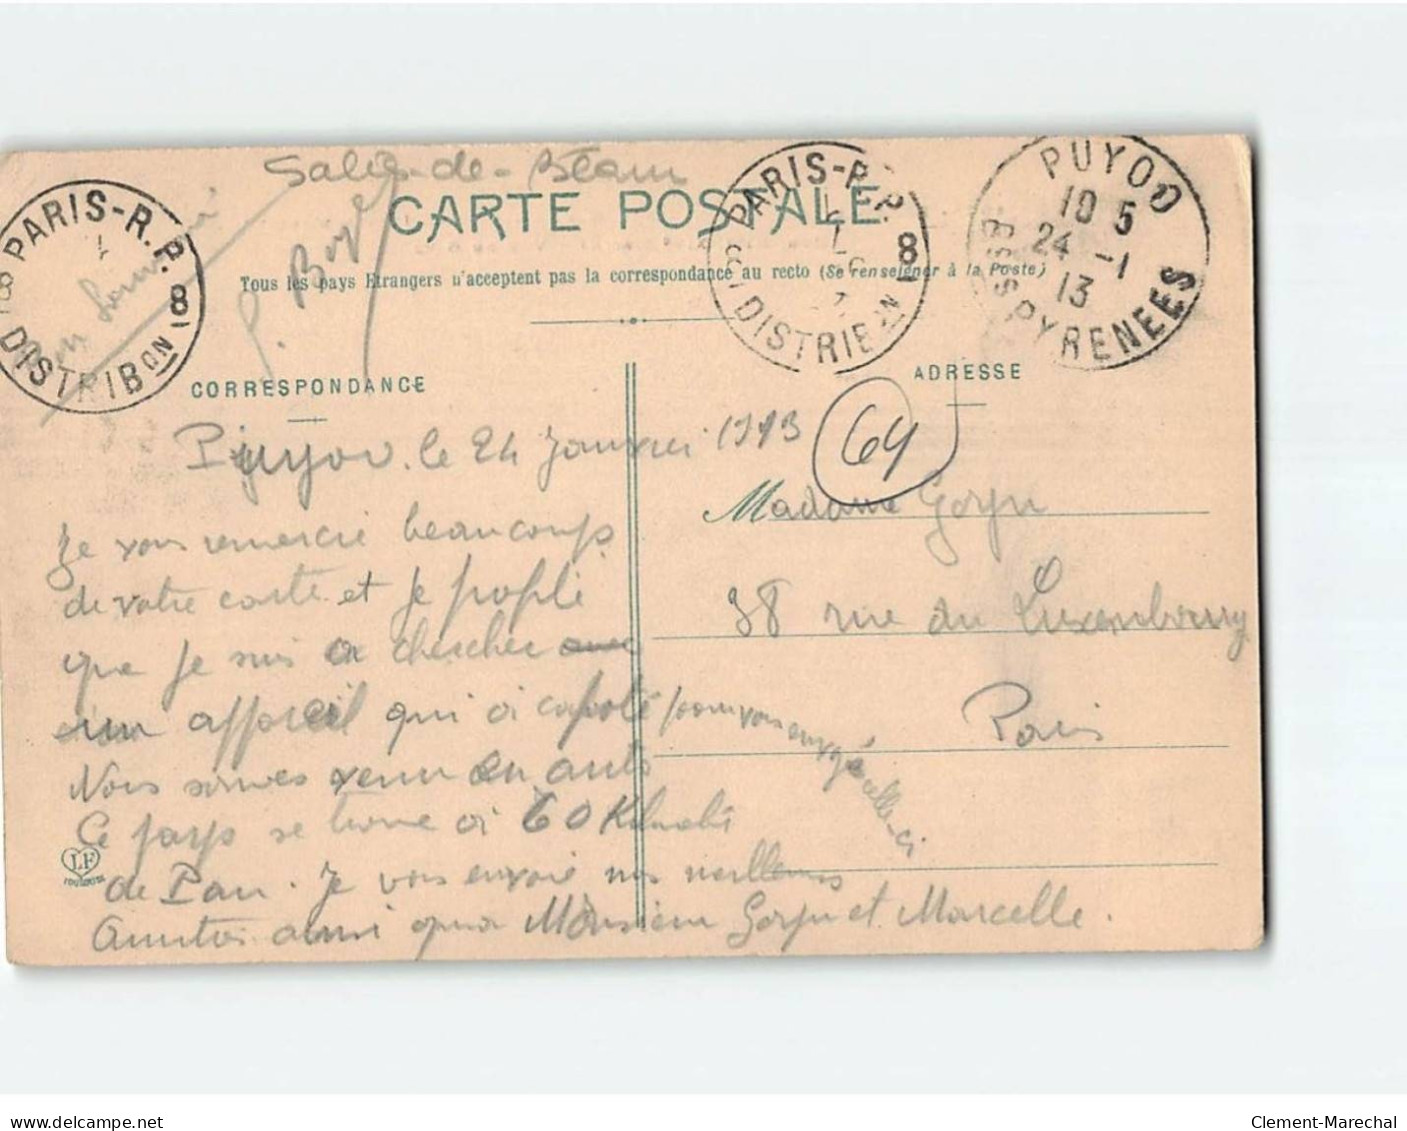 Salies-de-Béarn
CARTE POSTALE
Tous les pays Etrangers n'acceptent pas la correspondance au recto (Se renseigner à la Poste)
PARIS-R.P.
8 8
DISTRIBON
PARIS-R.P.
8 8
DISTRIBON
PUYOO
10 5
24 -1
13
BSES PYRENEES
CORRESPONDANCE
ADRESSE
64
Puyoo. le 24 Janvier 1913
Je vous remercie beaucoup
de votre carte et je profite
que je suis a chercher
un appareil qui a capoté pour vous envoyé celle-ci
Nous sommes venu en auto
Ce pays se trouve à 60 Kilm
de Pau. Je vous envoie mes meilleures
Amitiés ainsi qua Monsieur Goryn et Marcelle.
Madame Goryn
38 rue du Luxembourg
Paris
LF
TOULOUSE
delcampe.net
Clement-Marechal